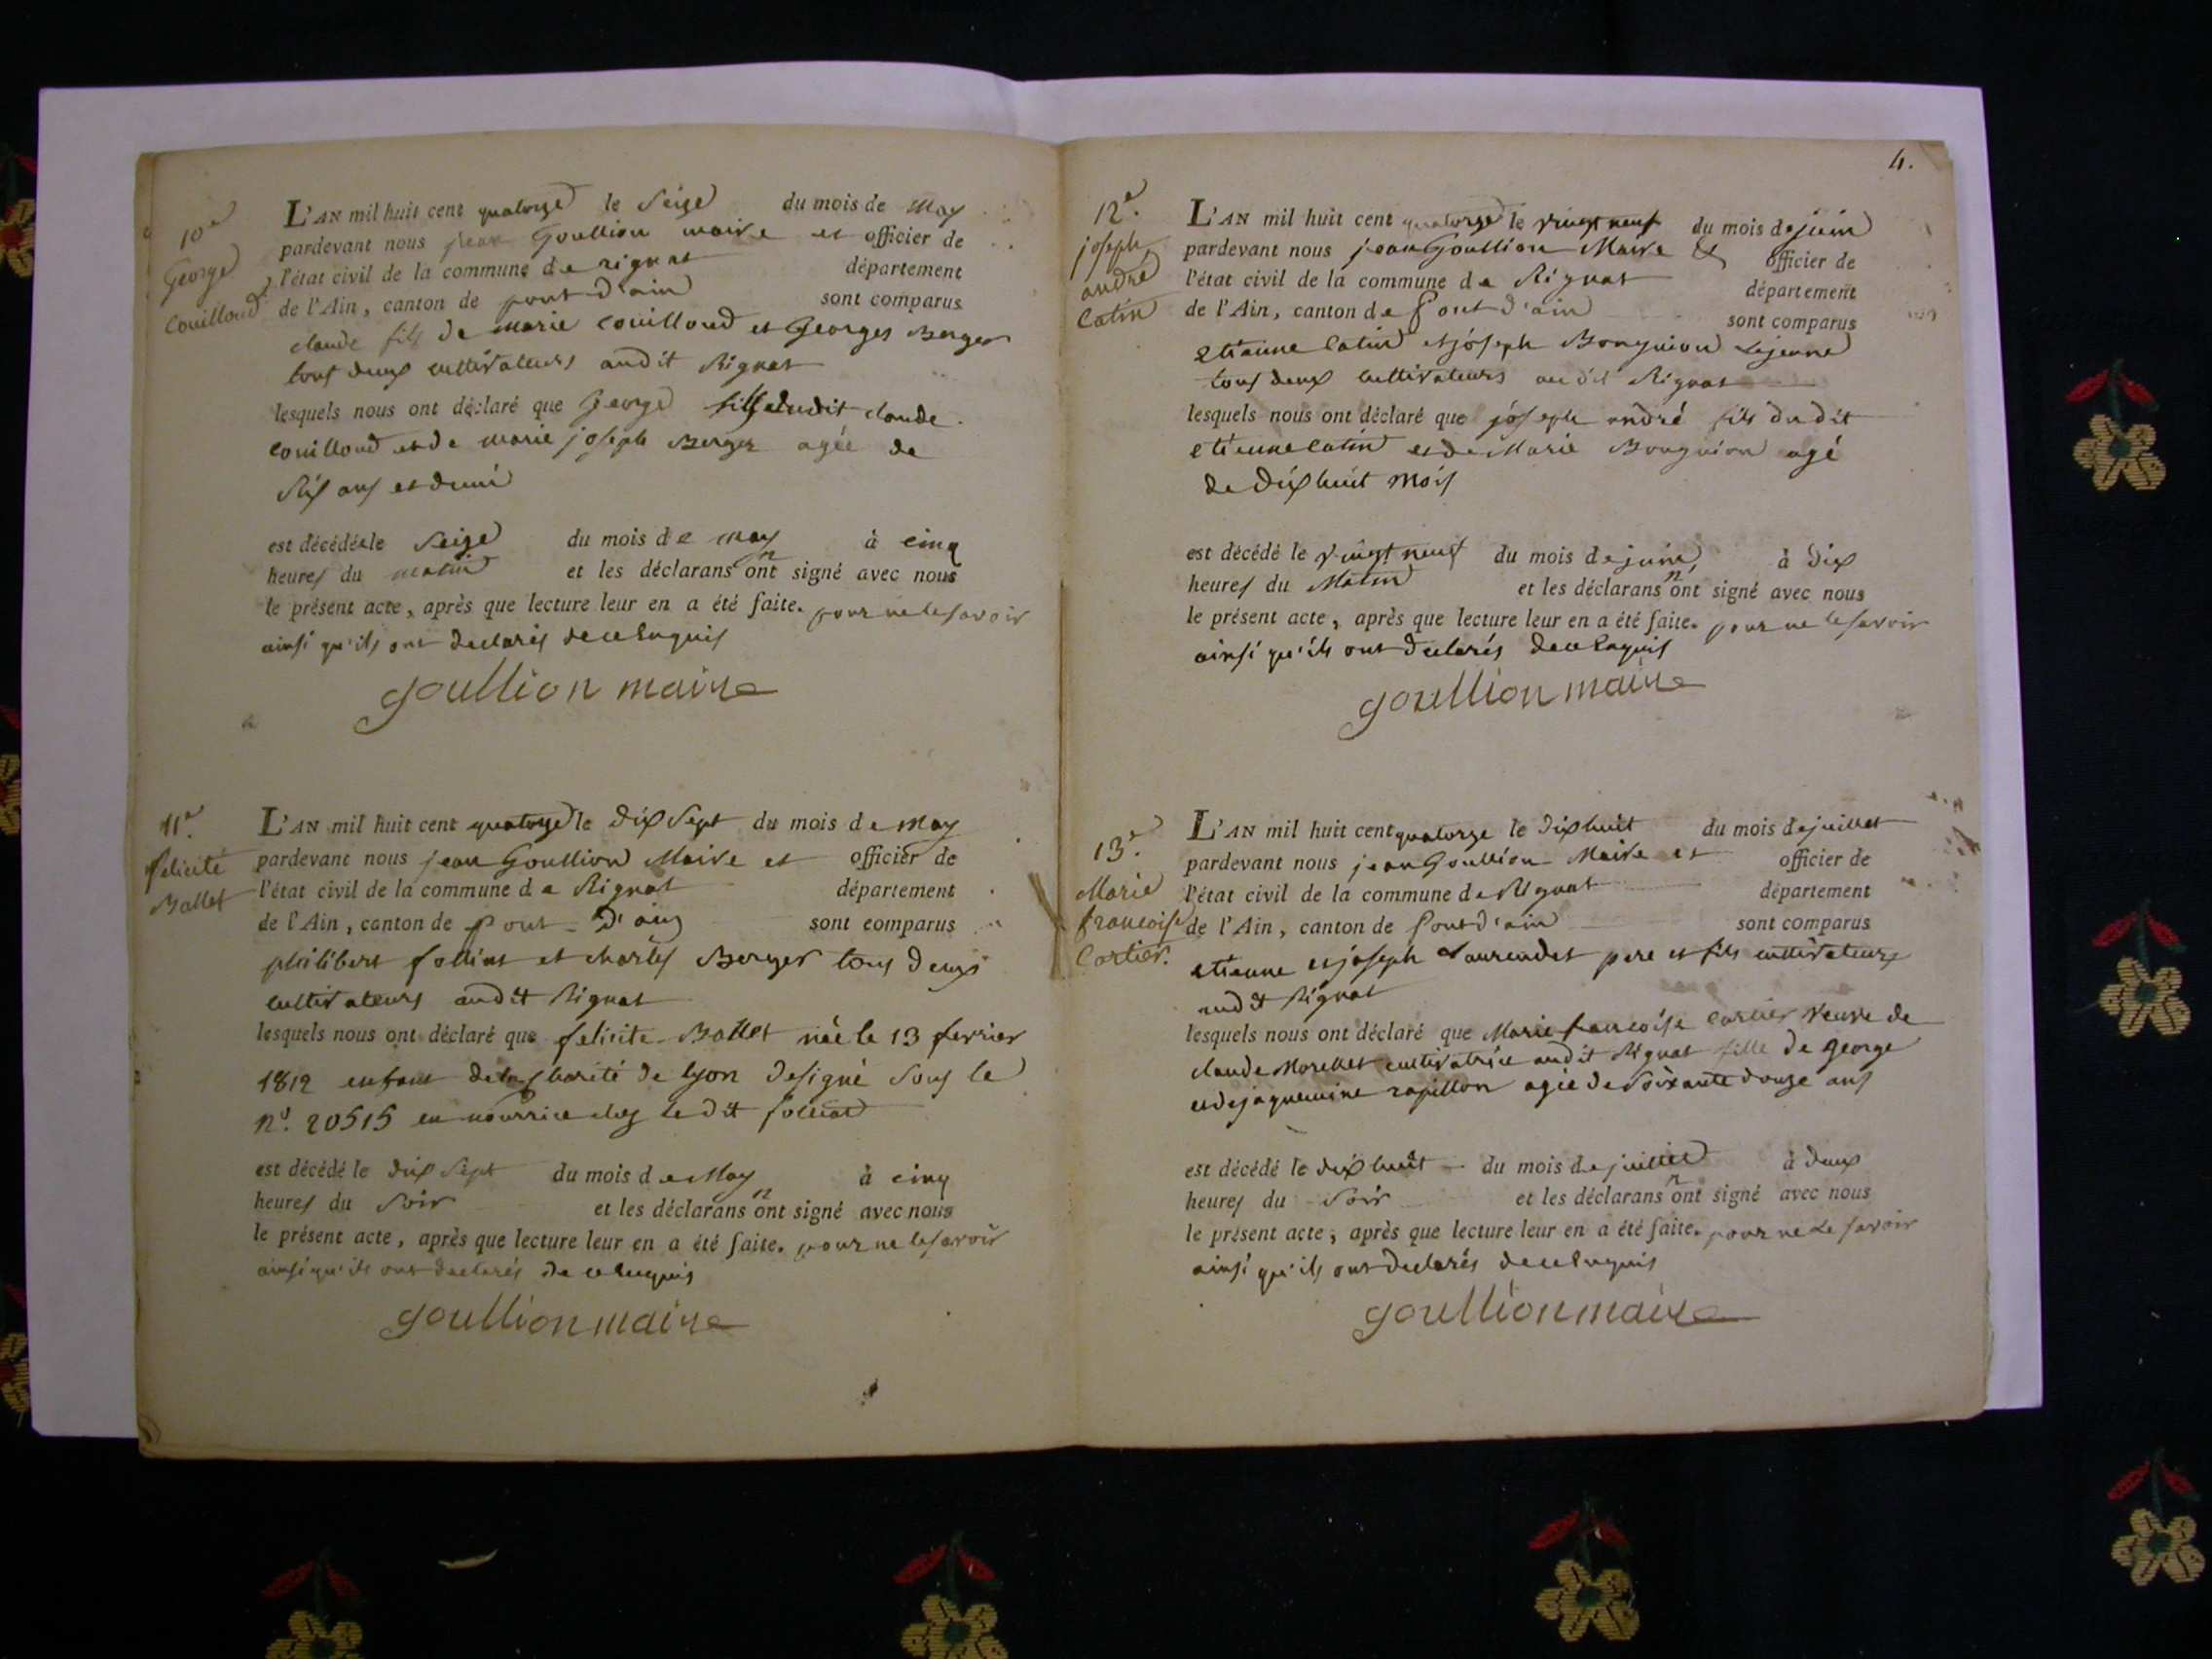 10e
George
Couilloud
L'AN mil huit cent quatorze le Seize du mois de May
pardevant nous jean Goullion maire et officier de
l'état civil de la commune de rignat département
de l'Ain, canton de pont d'ain sont comparus
claude fils de Marie Couilloud et Georges Berger
tous deux cultivateurs audit Rignat
lesquels nous ont déclaré que George fils dudit claude
Couilloud et de marie joseph Berger agée de
Six ans et demi
est décédée le Seize du mois de may à cinq
heures du matin et les déclarans n'ont signé avec nous
le présent acte, après que lecture leur en a été faite. pour ne le savoir
ainsi qu'ils ont declarés de ce Enquis
goullion maire
11e.
felicité
Ballet
L'AN mil huit cent quatorze le Dix Sept du mois de May
pardevant nous jean Goullion Maire et officier de
l'état civil de la commune de Rignat département
de l'Ain, canton de Pont-D'ain sont comparus
philibert follint et charles Berger tous deux
cultivateurs audit Rignat
lesquels nous ont déclaré que felicite Ballet née le 13 fevrier
1812 enfant de la charité de lyon designé Sous le
no. 20515 en nourrice chez le dit
est décédé le dix Sept du mois de May à cinq
heures du Soir et les déclarans n'ont signé avec nous
le présent acte, après que lecture leur en a été faite. pour ne le savoir
ainsi qu'ils ont declarés de ce Enquis
goullion maire
4.
12e.
joseph
andré
Catin
L'AN mil huit cent quatorze le vingt neuf du mois de juin
pardevant nous jean Goullion Maire & officier de
l'état civil de la commune de Rignat département
de l'Ain, canton de Pont d'ain sont comparus
etienne Catin et joseph Bouguion Lejeune
tous deux Cultivateurs audit Rignat
lesquels nous ont déclaré que joseph andré fils du dit
etienne Catin et de Marie Bouguion agé
de Dix huit Mois
est décédé le vingt neuf du mois de juin à Dix
heures du Matin et les déclarans n'ont signé avec nous
le présent acte, après que lecture leur en a été faite. pour ne le savoir
ainsi qu'ils ont declarés de ce Enquis
goullion maire
13e.
Marie
francoise
Cartier.
L'AN mil huit cent quatorze le Dix huit du mois de juillet
pardevant nous jean Goullion Maire et officier de
l'état civil de la commune de Rignat département
de l'Ain, canton de Pont d'ain sont comparus
etienne et joseph Laurendet pere et fils cultivateurs
audit Rignat
lesquels nous ont déclaré que Marie francoise Cartier Veuve de
claude Morellet cultivatrice audit Rignat fille de George
et de jaquemine rapillon agée de Soixante douze ans
est décédé le dix huit du mois de juillet à deux
heures du Soir et les déclarans n'ont signé avec nous
le présent acte, après que lecture leur en a été faite. pour ne le savoir
ainsi qu'ils ont declarés de ce Enquis
goullion maire